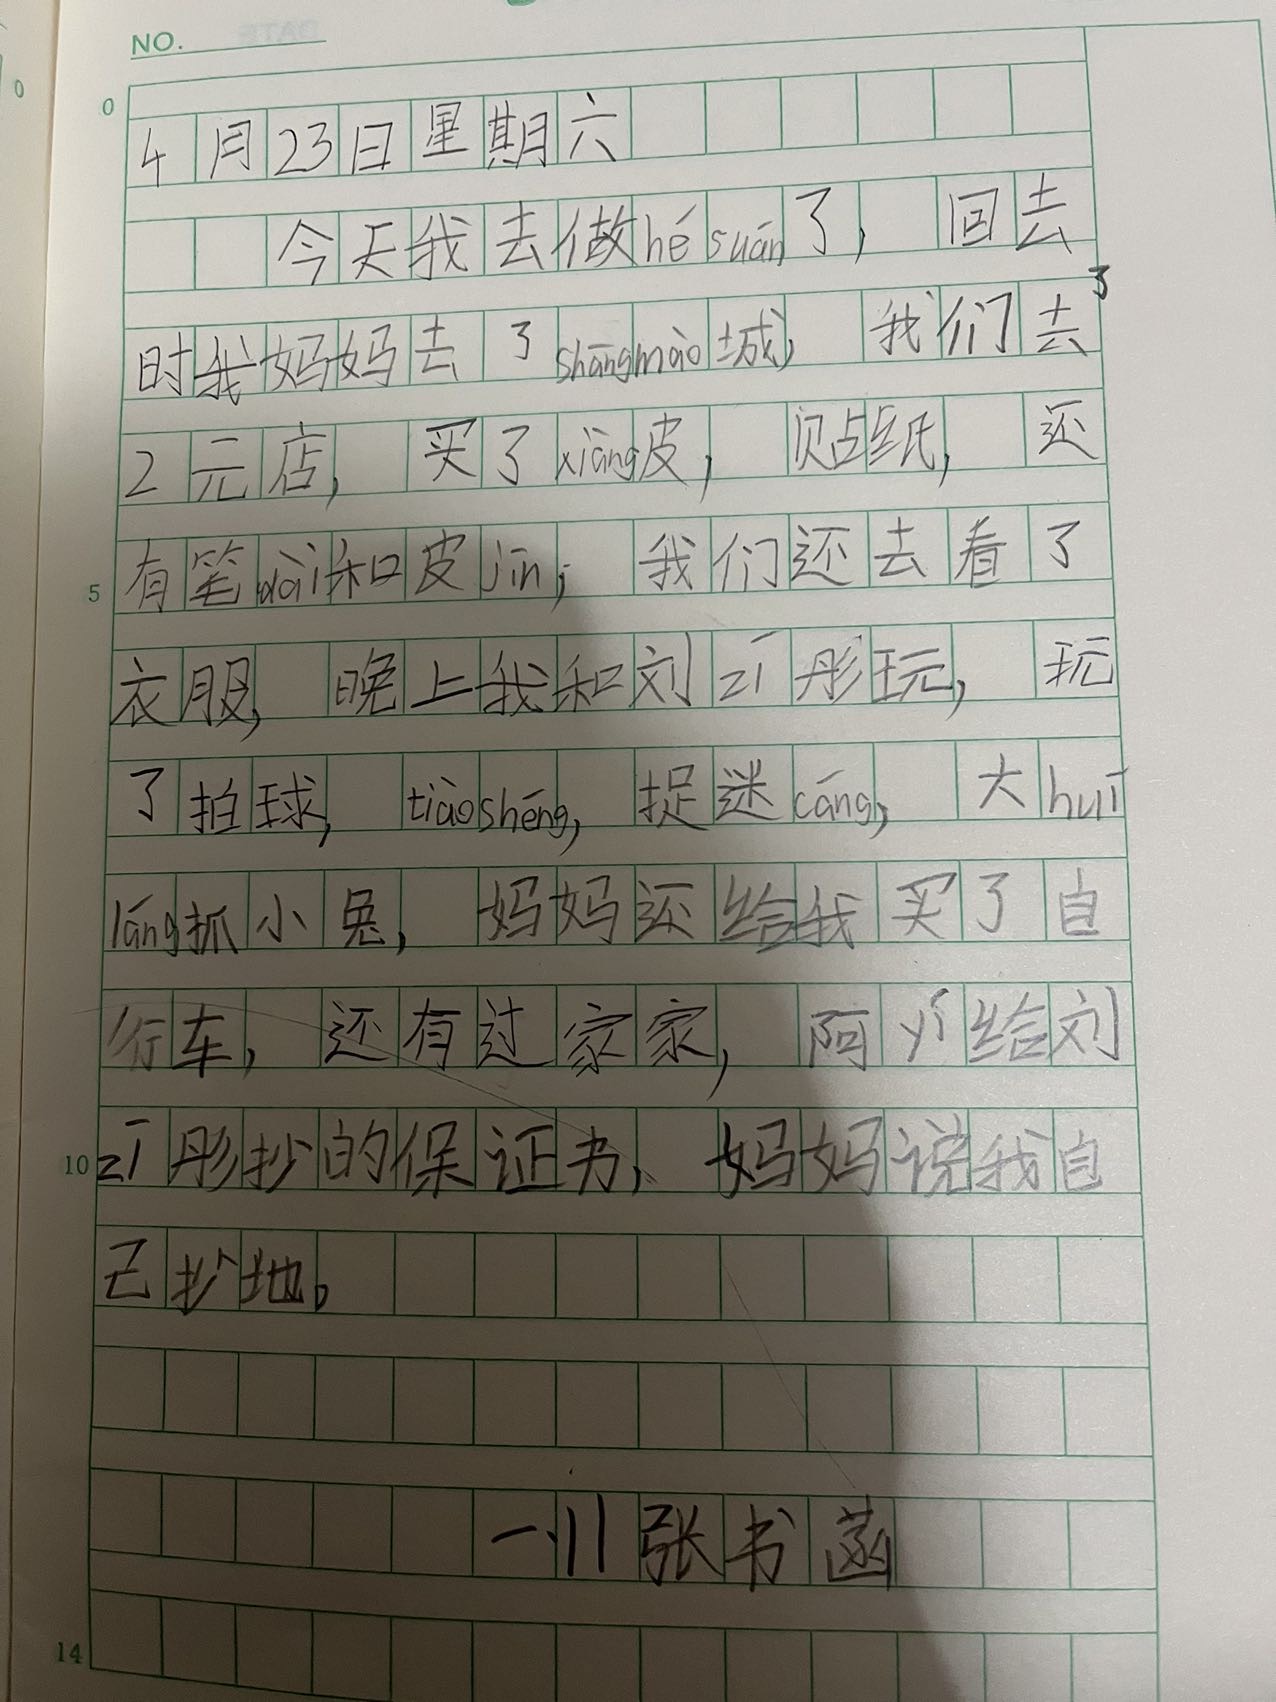 NO.
0
4月23日星期六
今天我去做hé suān了，回去
时我妈妈去了shāngmào城，我们去了
2元店，买了xiàng皮，贴纸，还
5 有笔dài和皮jīn，我们还去看了
衣服，晚上我和刘zī彤玩，玩
了拍球，tiàoshéng，捉迷cáng，大huī
láng抓小兔，妈妈还给我买了自
行车，还有过家家，阿yí给刘
10 zī彤抄的保证书，妈妈说我自
己抄地。
一.11张书菡
14